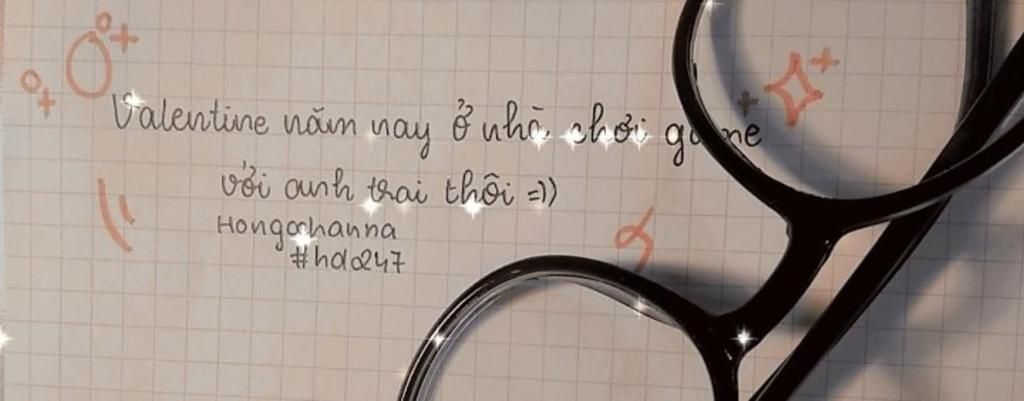 Valentine năm nay ở nhà chơi game
với anh trai thôi =))
Hongochanna
#hda247